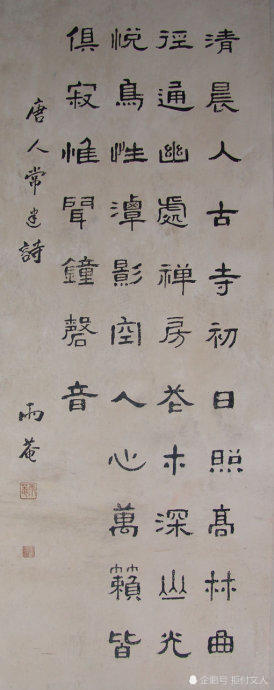 清晨入古寺初日照高林曲
徑通幽處禅房花木深山光
悅鳥性潭影空人心萬籟皆
俱寂惟聞鐘磬音
唐人常建詩
雨菴
企鹅号 拒付文人